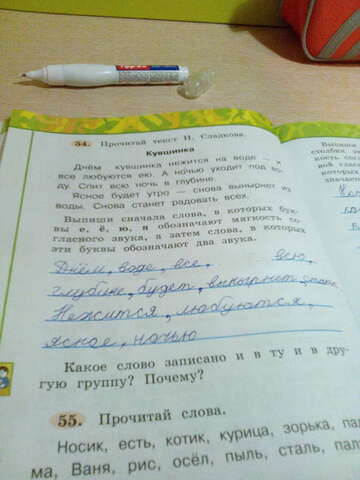 54. Прочитай текст Н. Сладкова.
Кувшинка
Днём кувшинка нежится на воде — и
все любуются ею. А ночью уходит под во-
ду. Спит всю ночь в глубине.
Ясное будет утро — снова вынырнет из
воды. Снова станет радовать всех.
Выпиши сначала слова, в которых бук-
вы е, ё, ю, я обозначают мягкость со-
гласного звука, а затем слова, в которых
эти буквы обозначают два звука.
Днём, воде, все, всю,
глубине, будет, вынырнет
Нежится, любуются,
ясное, ночью
Какое слово записано и в ту и в дру-
гую группу? Почему?
55. Прочитай слова.
Носик, есть, котик, курица, зорька,
ма, Ваня, рис, осёл, пыль, сталь,
Выпиши
столбик
кость
ной
которых
значает